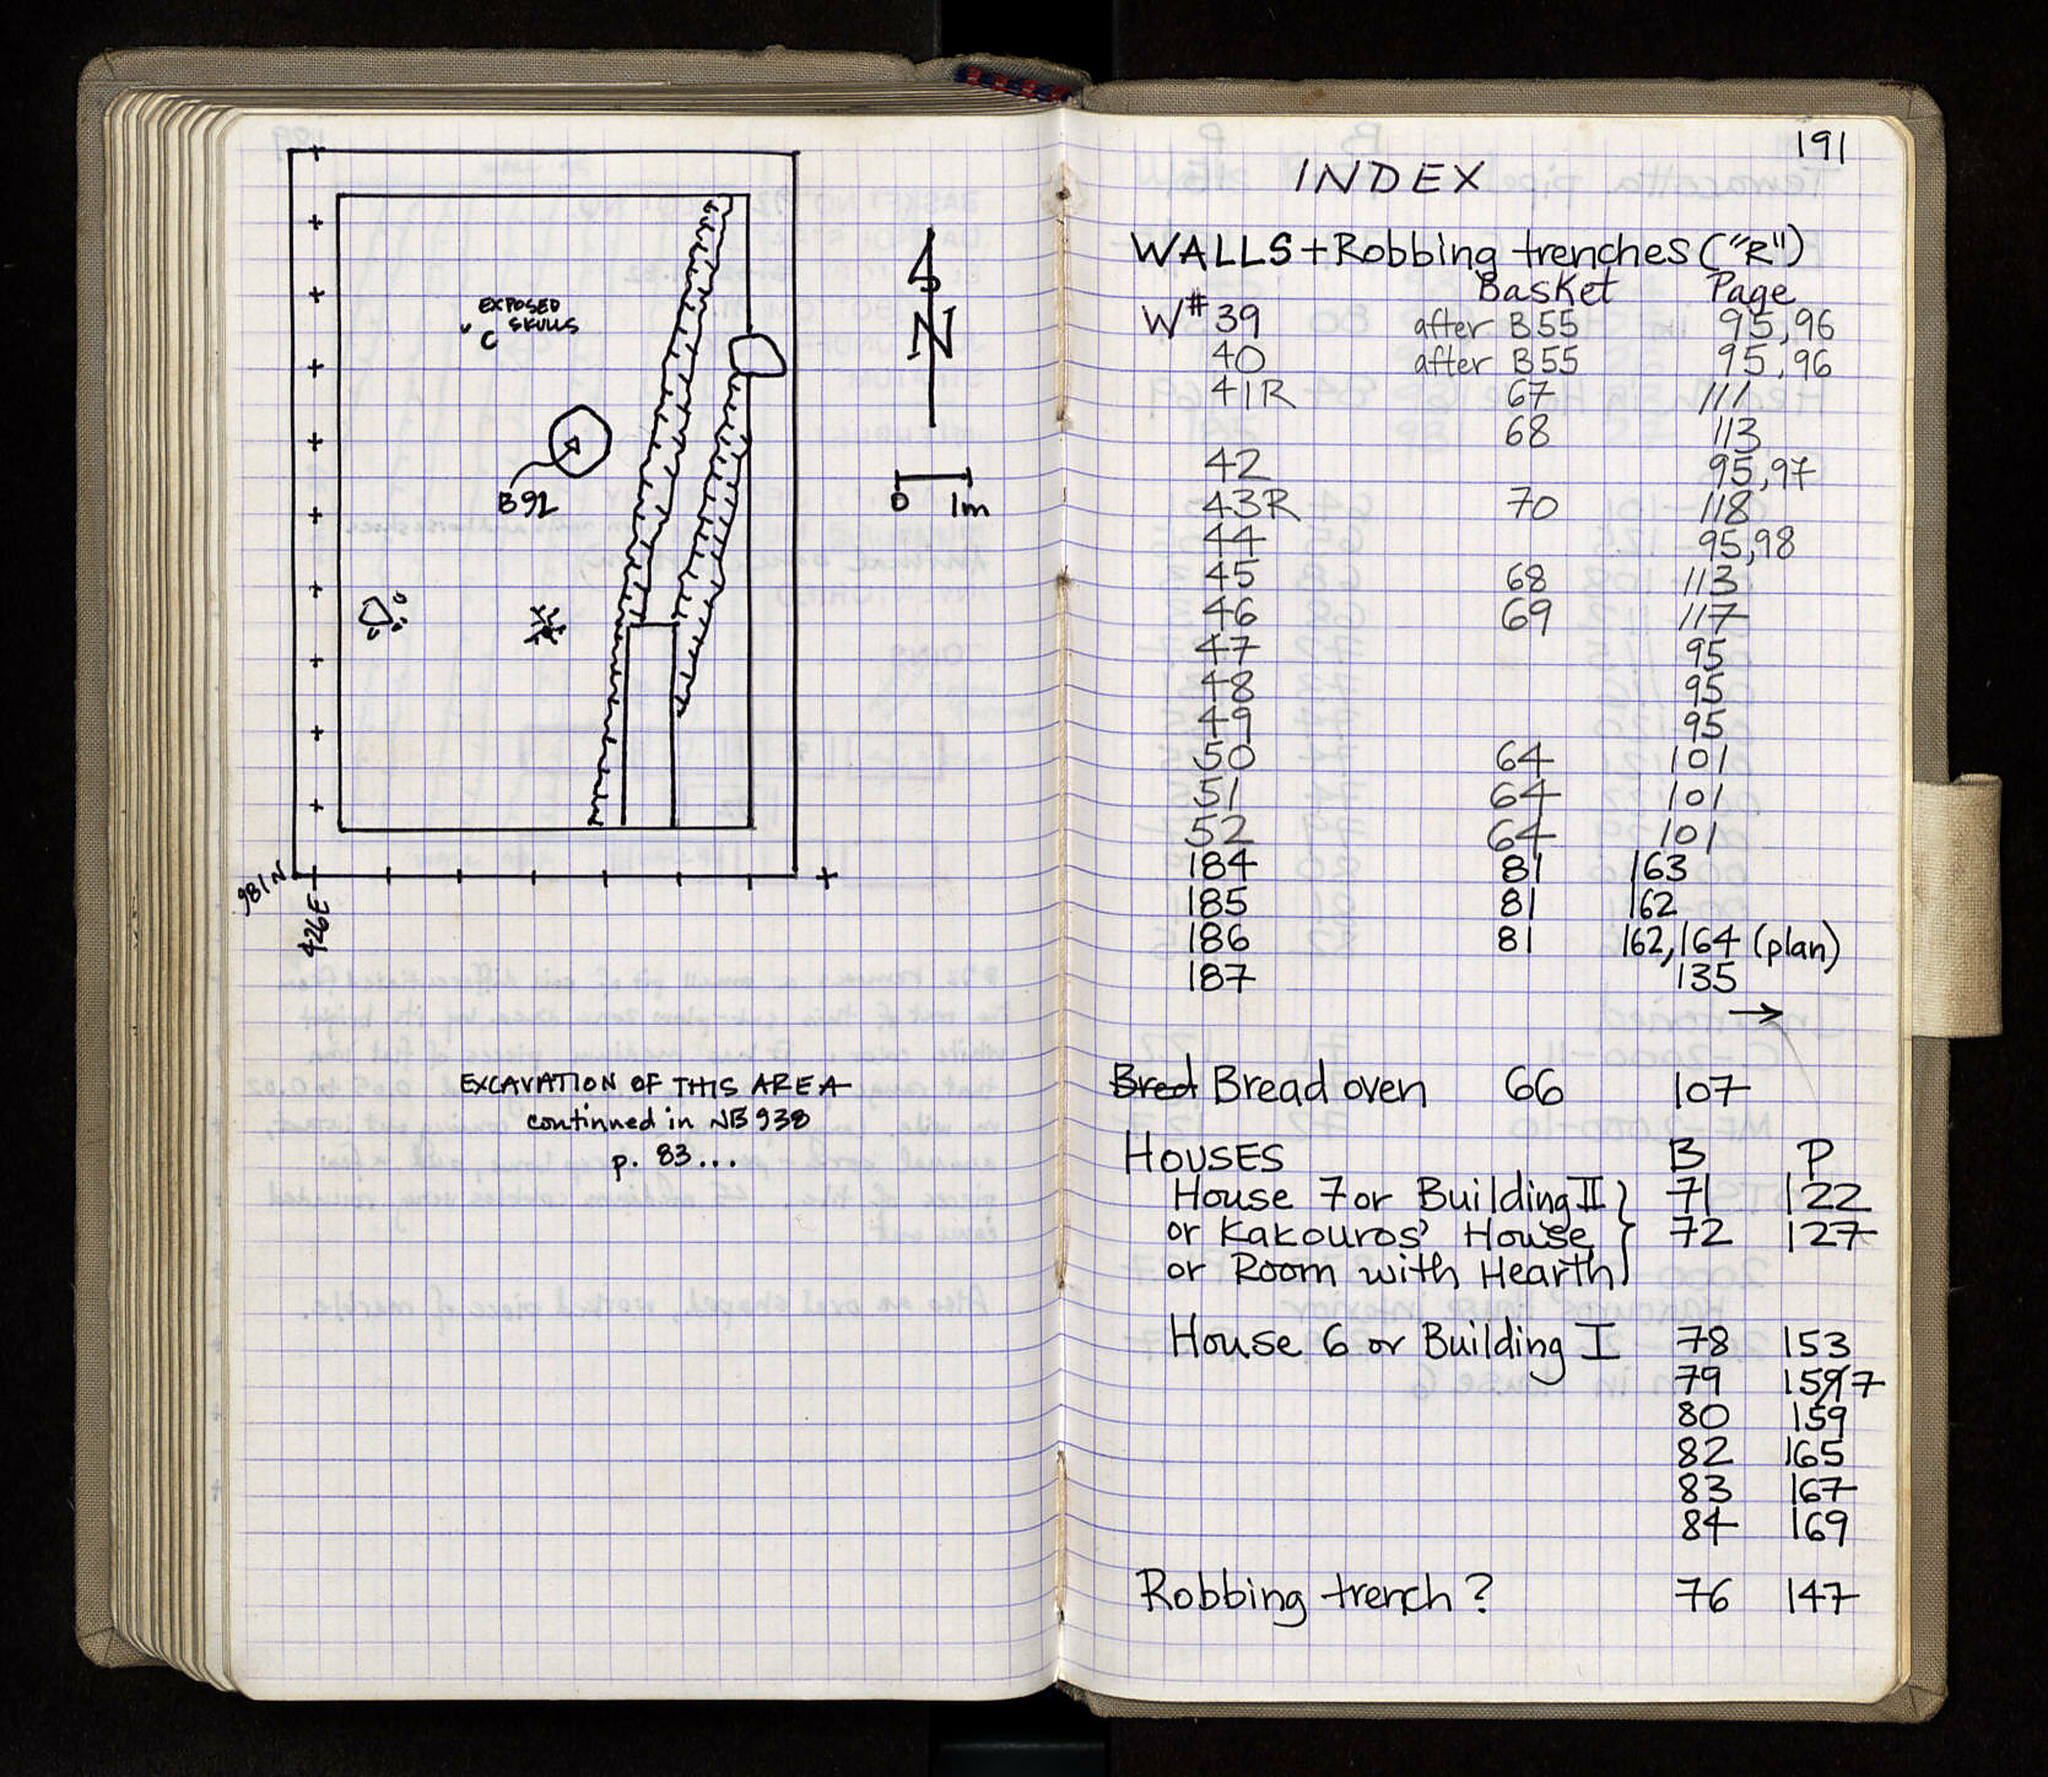 EXPOSED
SKULLS
N
B92
0 1m
981N
426E
EXCAVATION OF THIS AREA
continued in NB 938
p. 83...
191
INDEX
WALLS + Robbing trenches ("R")
Basket Page
W# 39 after B55 95,96
40 after B55 95,96
41R 67 111
68 113
42 95,97
43R 70 118
44 95,98
45 68 113
46 69 117
47 95
48 95
49 95
50 64 101
51 64 101
52 64 101
184 81 163
185 81 162
186 81 162,164 (plan)
187 135
→
Bred Bread oven 66 107
HOUSES B P
House 7 or Building II } 71 122
or Kakouros' House 72 127
or Room with Hearth
House 6 or Building I 78 153
79 1597
80 159
82 165
83 167
84 169
Robbing trench? 76 147